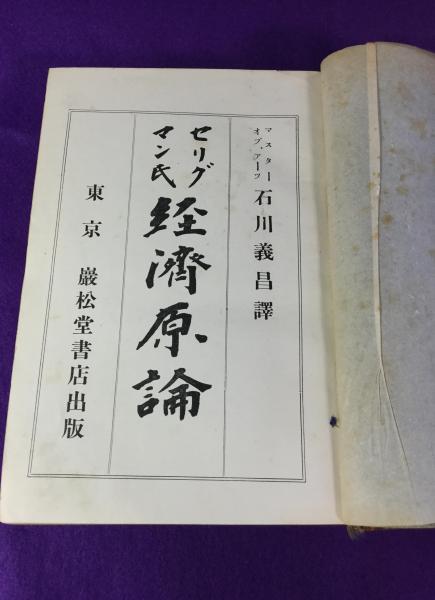 マスター
オブ、アーツ
石川義昌譯
セリグ
マン氏
経濟原論
東京 巖松堂書店出版